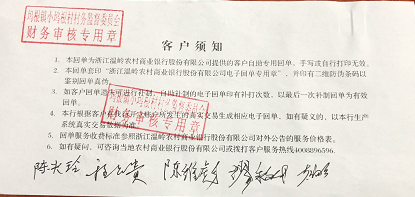 坞根镇小坞根村村务监督委员会
财务审核专用章
客户须知
1. 本回单为浙江温岭农村商业银行股份有限公司提供的客户自助专用回单，手写或自行打印无效。
2. 本回单套印“浙江温岭农村商业银行股份有限公司电子回单专用章”，并印有二维防伪条码以
鉴别回单真伪。
3. 如客户回单遗失可进行补制，自助补制的电子回单印有补打次数，以最后一次补制回单为有效
回单。
4. 本行根据客户在我行开立账户所发生的真实交易生成相应电子回单，如有疑义的，以本行生产
系统真实交易数据为准。
5. 回单服务收费标准参照浙江温岭农村商业银行股份有限公司对外公告的服务价格表。
6. 如有疑问，可咨询当地农村商业银行股份有限公司或拨打客户服务热线4008896596.
财务审核专用章